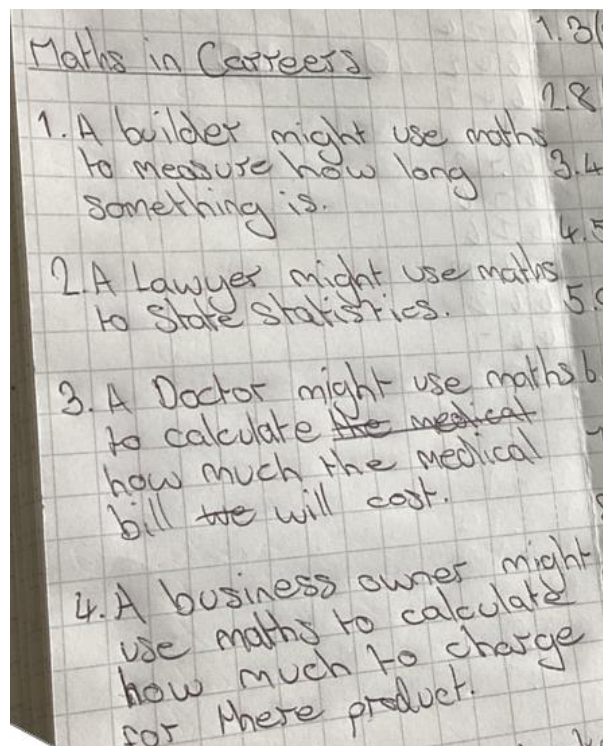 Maths in Carreers
1. A builder might use maths
to measure how long
something is.
2. A Lawyer might use maths
to State Statistics.
3. A Doctor might use maths
to calculate the medical
how much the medical
bill we will cost.
4. A business owner might
use maths to calculate
how much to charge
for there product.
1.3
2.8
3.4
4.5
5.
6